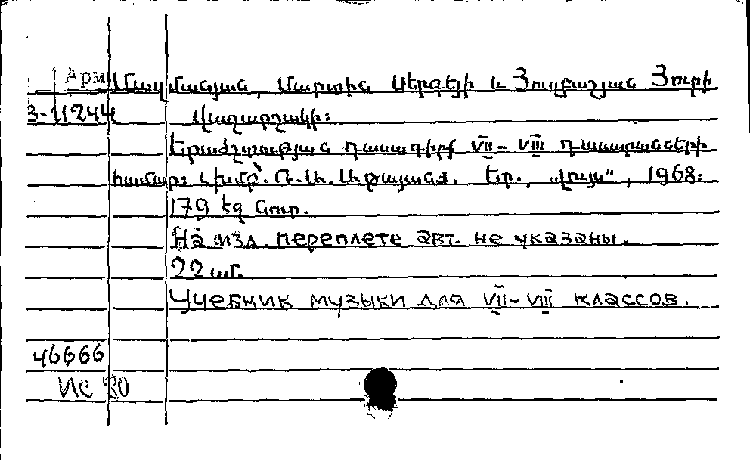 Арм Մազմանյան, Մարտին Սերգեյի և Յուզբաշյան Յուրի
3-11244 Վաղարշակի:
Երաժշտության դասագիրք VII-VIII դասարանների
համար: Խմբ՝ Ռ. Ա. Աթայանց. Եր., „Լույս", 1968:
179 էջ նոտ.
На изд. переплете авт. не указаны.
22 шг.
Учебник музыки для VII-VIII классов.
46666
Ис 80